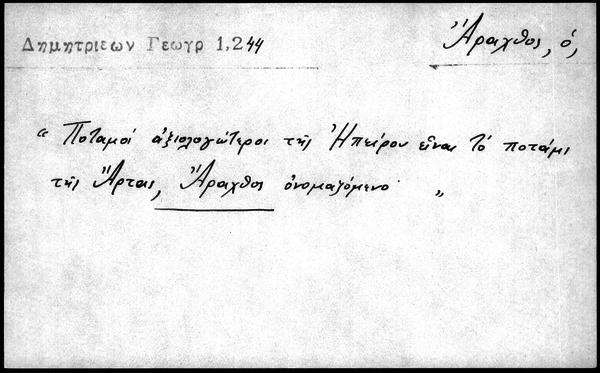 Δημητριεων Γεωγρ 1,244
Ἄραχθος, ὁ,
" Ποταμοί ἀξιολογώτεροι τῆς Ἠπείρου εἶναι τό ποτάμι
τῆς Ἄρτας, Ἄραχθος ὀνομαζόμενο "